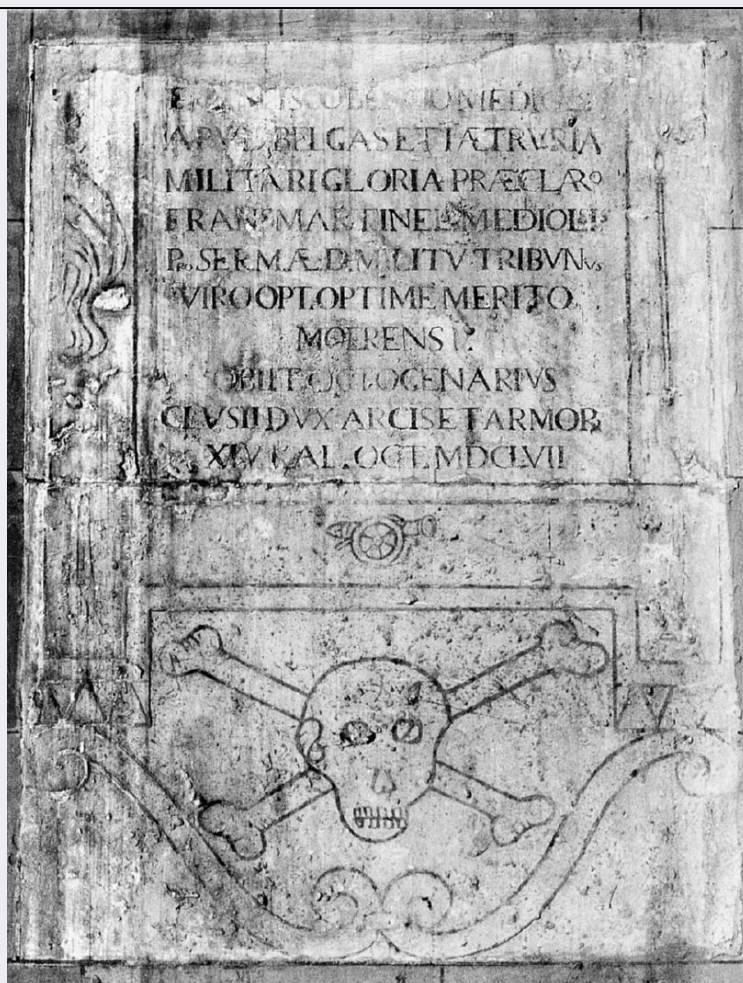 MEDIOL
APVD BELGAS ET IÆTRVRIA
MILITARI GLORIA PRÆCLARO
FRAN MARTINEL MEDIOL
PRO SERMÆ D. MILITV TRIBVNVS
VIRO OPT. OPTIME MERITO
MOERENS P.
OBIIT OCTOGENARIVS
CLVSII DVX ARCIS ET ARMOR
XIV KAL. OCT. MDCLVII